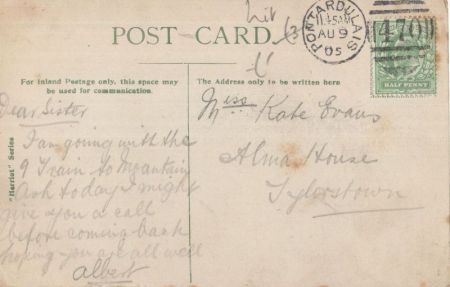 POST CARD.
PONTARDULAIS
11.45AM
AU 9
05
470
HALF PENNY
For Inland Postage only, this space may
be used for communication.
The Address only to be written here
"Harriet" Series
Dear Sister
I am going with the
9 Train to Mountain
Ash to day I might
give you a call
before coming back
hoping you are all well
Albert
Miss Kate Evans
Alma House
Tylorstown